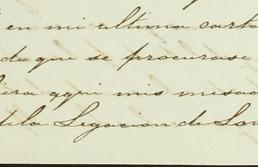 en mi ultima carta
de que se procurase
aqui mis
dela Legacion de Lon